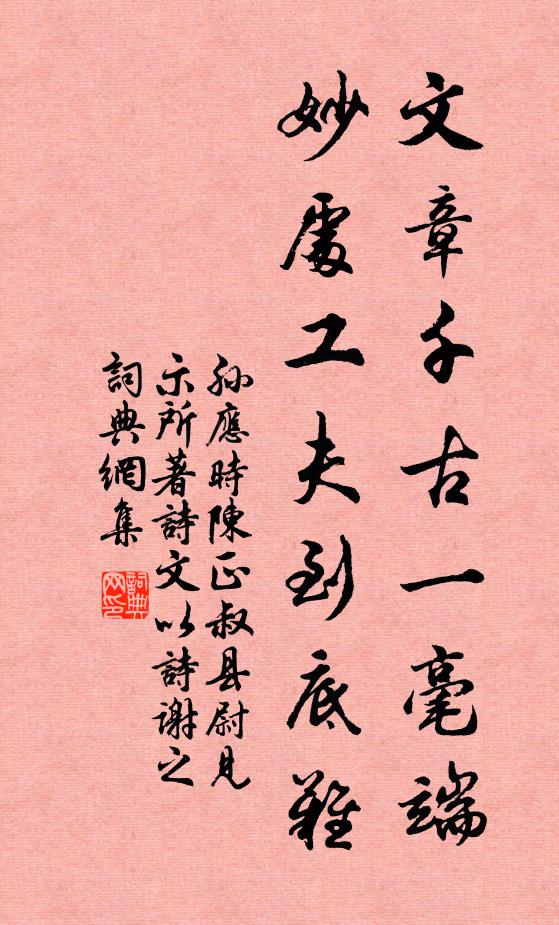 文章千古一毫端
妙處工夫到底難
孫應時陳正叔县尉見
示所著詩文以詩謝之
詞典網集
詞典
网印